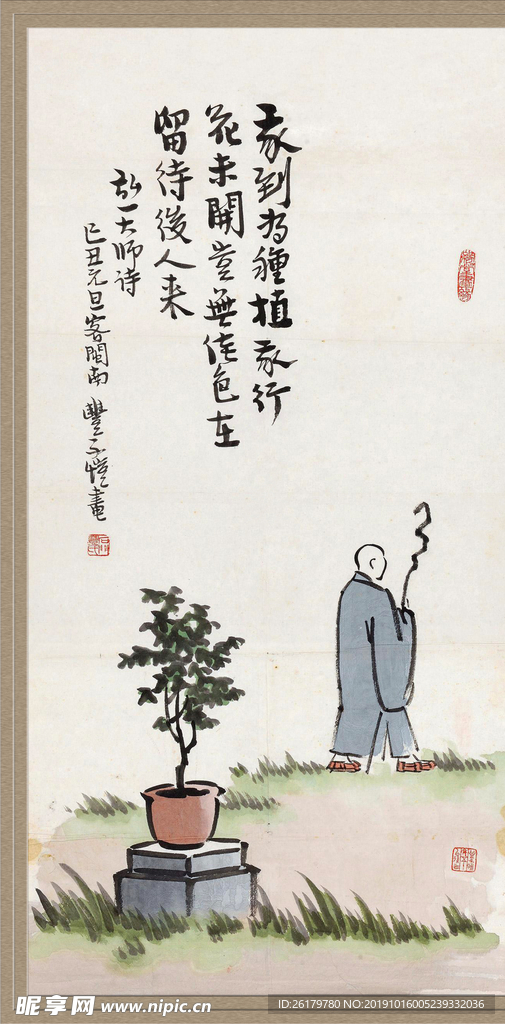 我到为種植我行
花未開豈無佳色在
留待後人来
弘一大師诗
己丑元旦客閩南 豐子愷畫
昵享网 www.nipic.cn
ID:26179780 NO:20191016005239332036